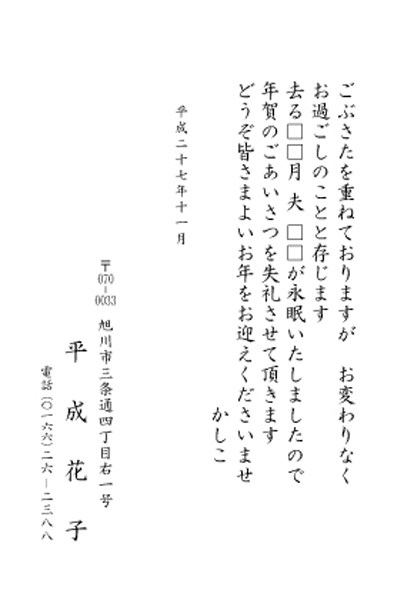 ごぶさたを重ねておりますが　お変わりなく
お過ごしのことと存じます
去る□□月 夫 □□が永眠いたしましたので
年賀のごあいさつを失礼させて頂きます
どうぞ皆さまよいお年をお迎えくださいませ
かしこ
平成二十七年十一月
〒070-0033 旭川市三条通四丁目右一号
平成花子
電話(〇一六六)二六－二三八八